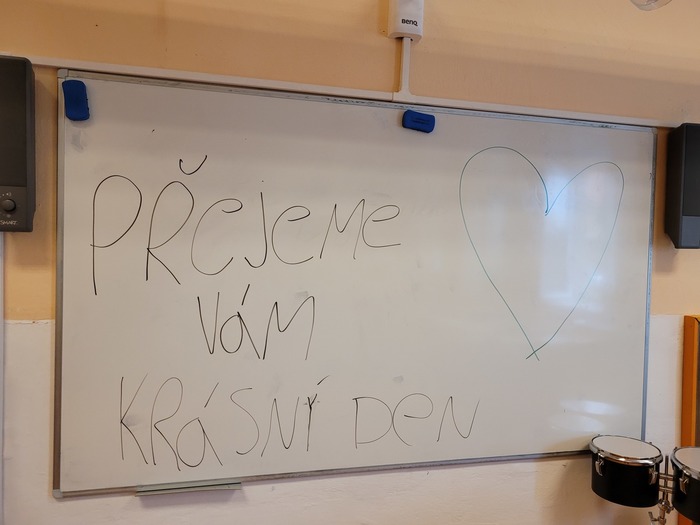 BenQ
PŘejeMe
VáM
KRáSNÍ Den